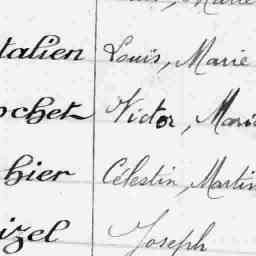 talien Louis, Marie
ochet Victor, Marie
hier Célestin, Martin
izel Joseph